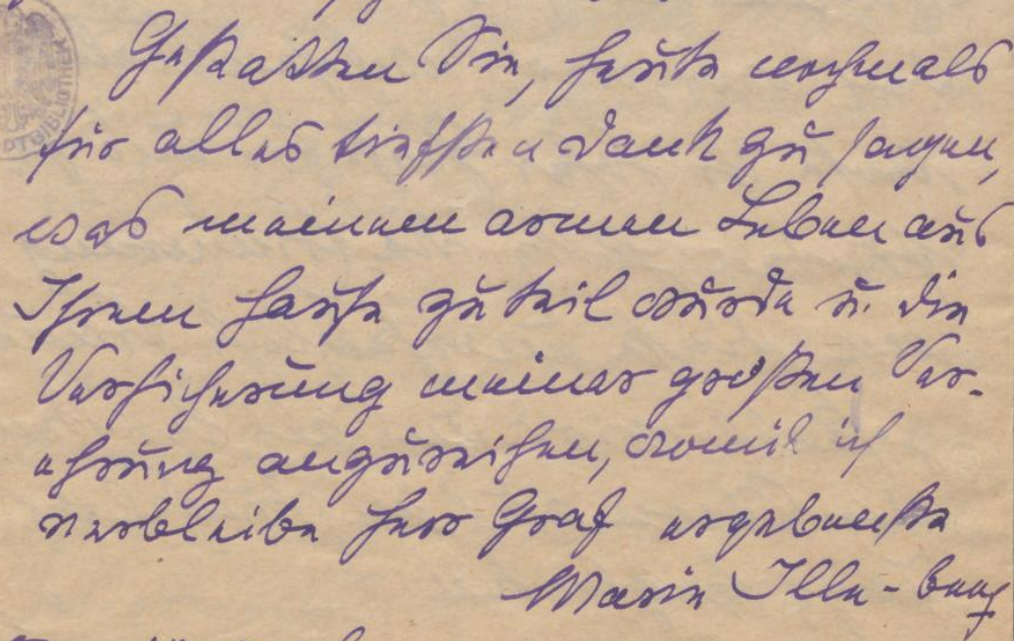 Gestatten Sie, heute nochmals
für alles tiefsten Dank zu sagen,
was meinem armen Leben aus
Ihrem Hause zu teil wurde u. die
Versicherung meiner großen Ver-
ehrung anzureihen, womit ich
verbleibe Herr Graf ergebenste
Marie Ille-Beeg